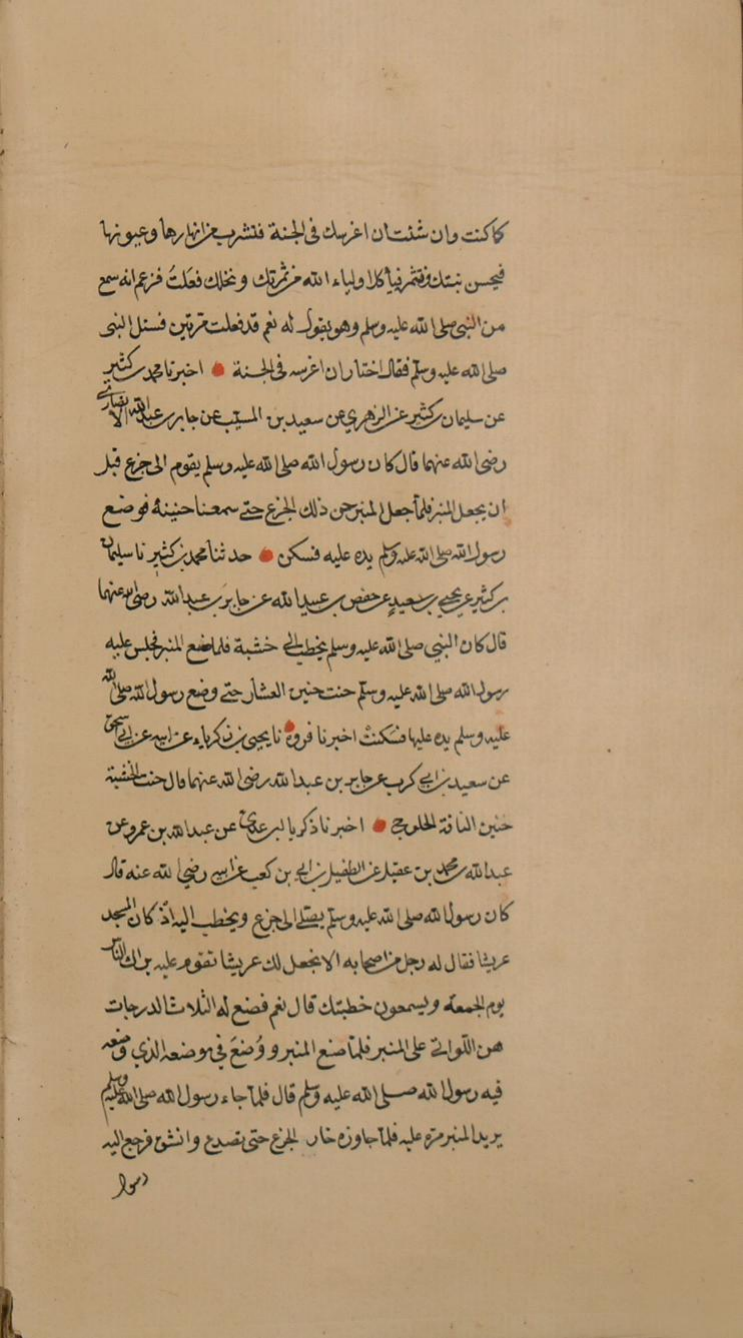 كما كنت وان شئت ان اغرسك في الجنة فتشرب من انهارها وعيونها
فيحسن نبتك وتثمر فيأكل اولياء الله من ثمرتك ونخلك فعلتُ فزعم انه سمع
من النبي صلى الله عليه وسلم وهو يقول له نعم قد فعلت مرتين فسئل النبي
صلى الله عليه وسلم فقال اختار ان اغرسه في الجنة ● اخبرنا محمد بن كثير
عن سليمان بن كثير عن الزهري عن سعيد بن المسيب عن جابر بن عبد الله الانصاري
رضي الله عنهما قال كان رسول الله صلى الله عليه وسلم يقوم الى جزع قبل
ان يجعل المنبر فلما جعل المنبر حن ذلك الجزع حتى سمعنا حنينه فوضع
رسول الله صلى الله عليه وسلم يده عليه فسكن ● حدثنا محمد بن كثير نا سليمان
بن كثير عن يحيى بن سعيد عن حفص بن عبيد الله عن جابر بن عبد الله رضي الله عنهما
قال كان النبي صلى الله عليه وسلم يخطب الى خشبة فلما صنع المنبر فجلس عليه
رسول الله صلى الله عليه وسلم حنت حنين العشار حتى وضع رسول الله صلى الله
عليه وسلم يده عليها فسكنت ● اخبرنا فروة نا يحيى بن زكرياء عن ابيه عن ابي اسحق
عن سعيد بن ابي كرب عن جابر بن عبد الله رضي الله عنهما قال حنت الخشبة
حنين الناقة الخلوج ● اخبرنا زكريا بن عدي عن عبد الله بن عمرو عن
عبد الله بن محمد بن عقيل عن الطفيل بن ابي بن كعب عن ابيه رضي الله عنه قال
كان رسول الله صلى الله عليه وسلم يصلي الى جزع ويخطب اليه اذ كان المسجد
عريشا فقال له رجل من اصحابه الا نجعل لك عريشا تقوم عليه يراك الناس
يوم الجمعة ويسمعون خطبتك قال نعم فصنع له الثلاث الدرجات
هن اللواتي على المنبر فلما صنع المنبر ووُضعَ في موضعه الذي وضعه
فيه رسول الله صلى الله عليه وسلم قال فلما جاء رسول الله صلى الله عليه وسلم
يريد المنبر مر عليه فلما جاوزه خار الجزع حتى تصدع وانشق فرجع اليه
رسول